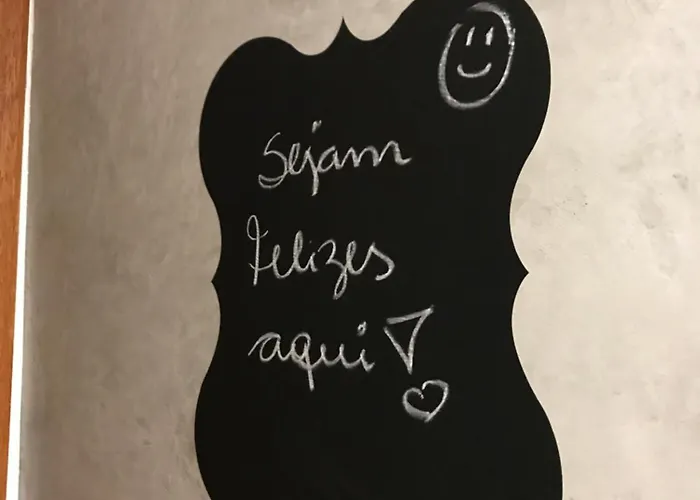 Sejam
felizes
aqui!